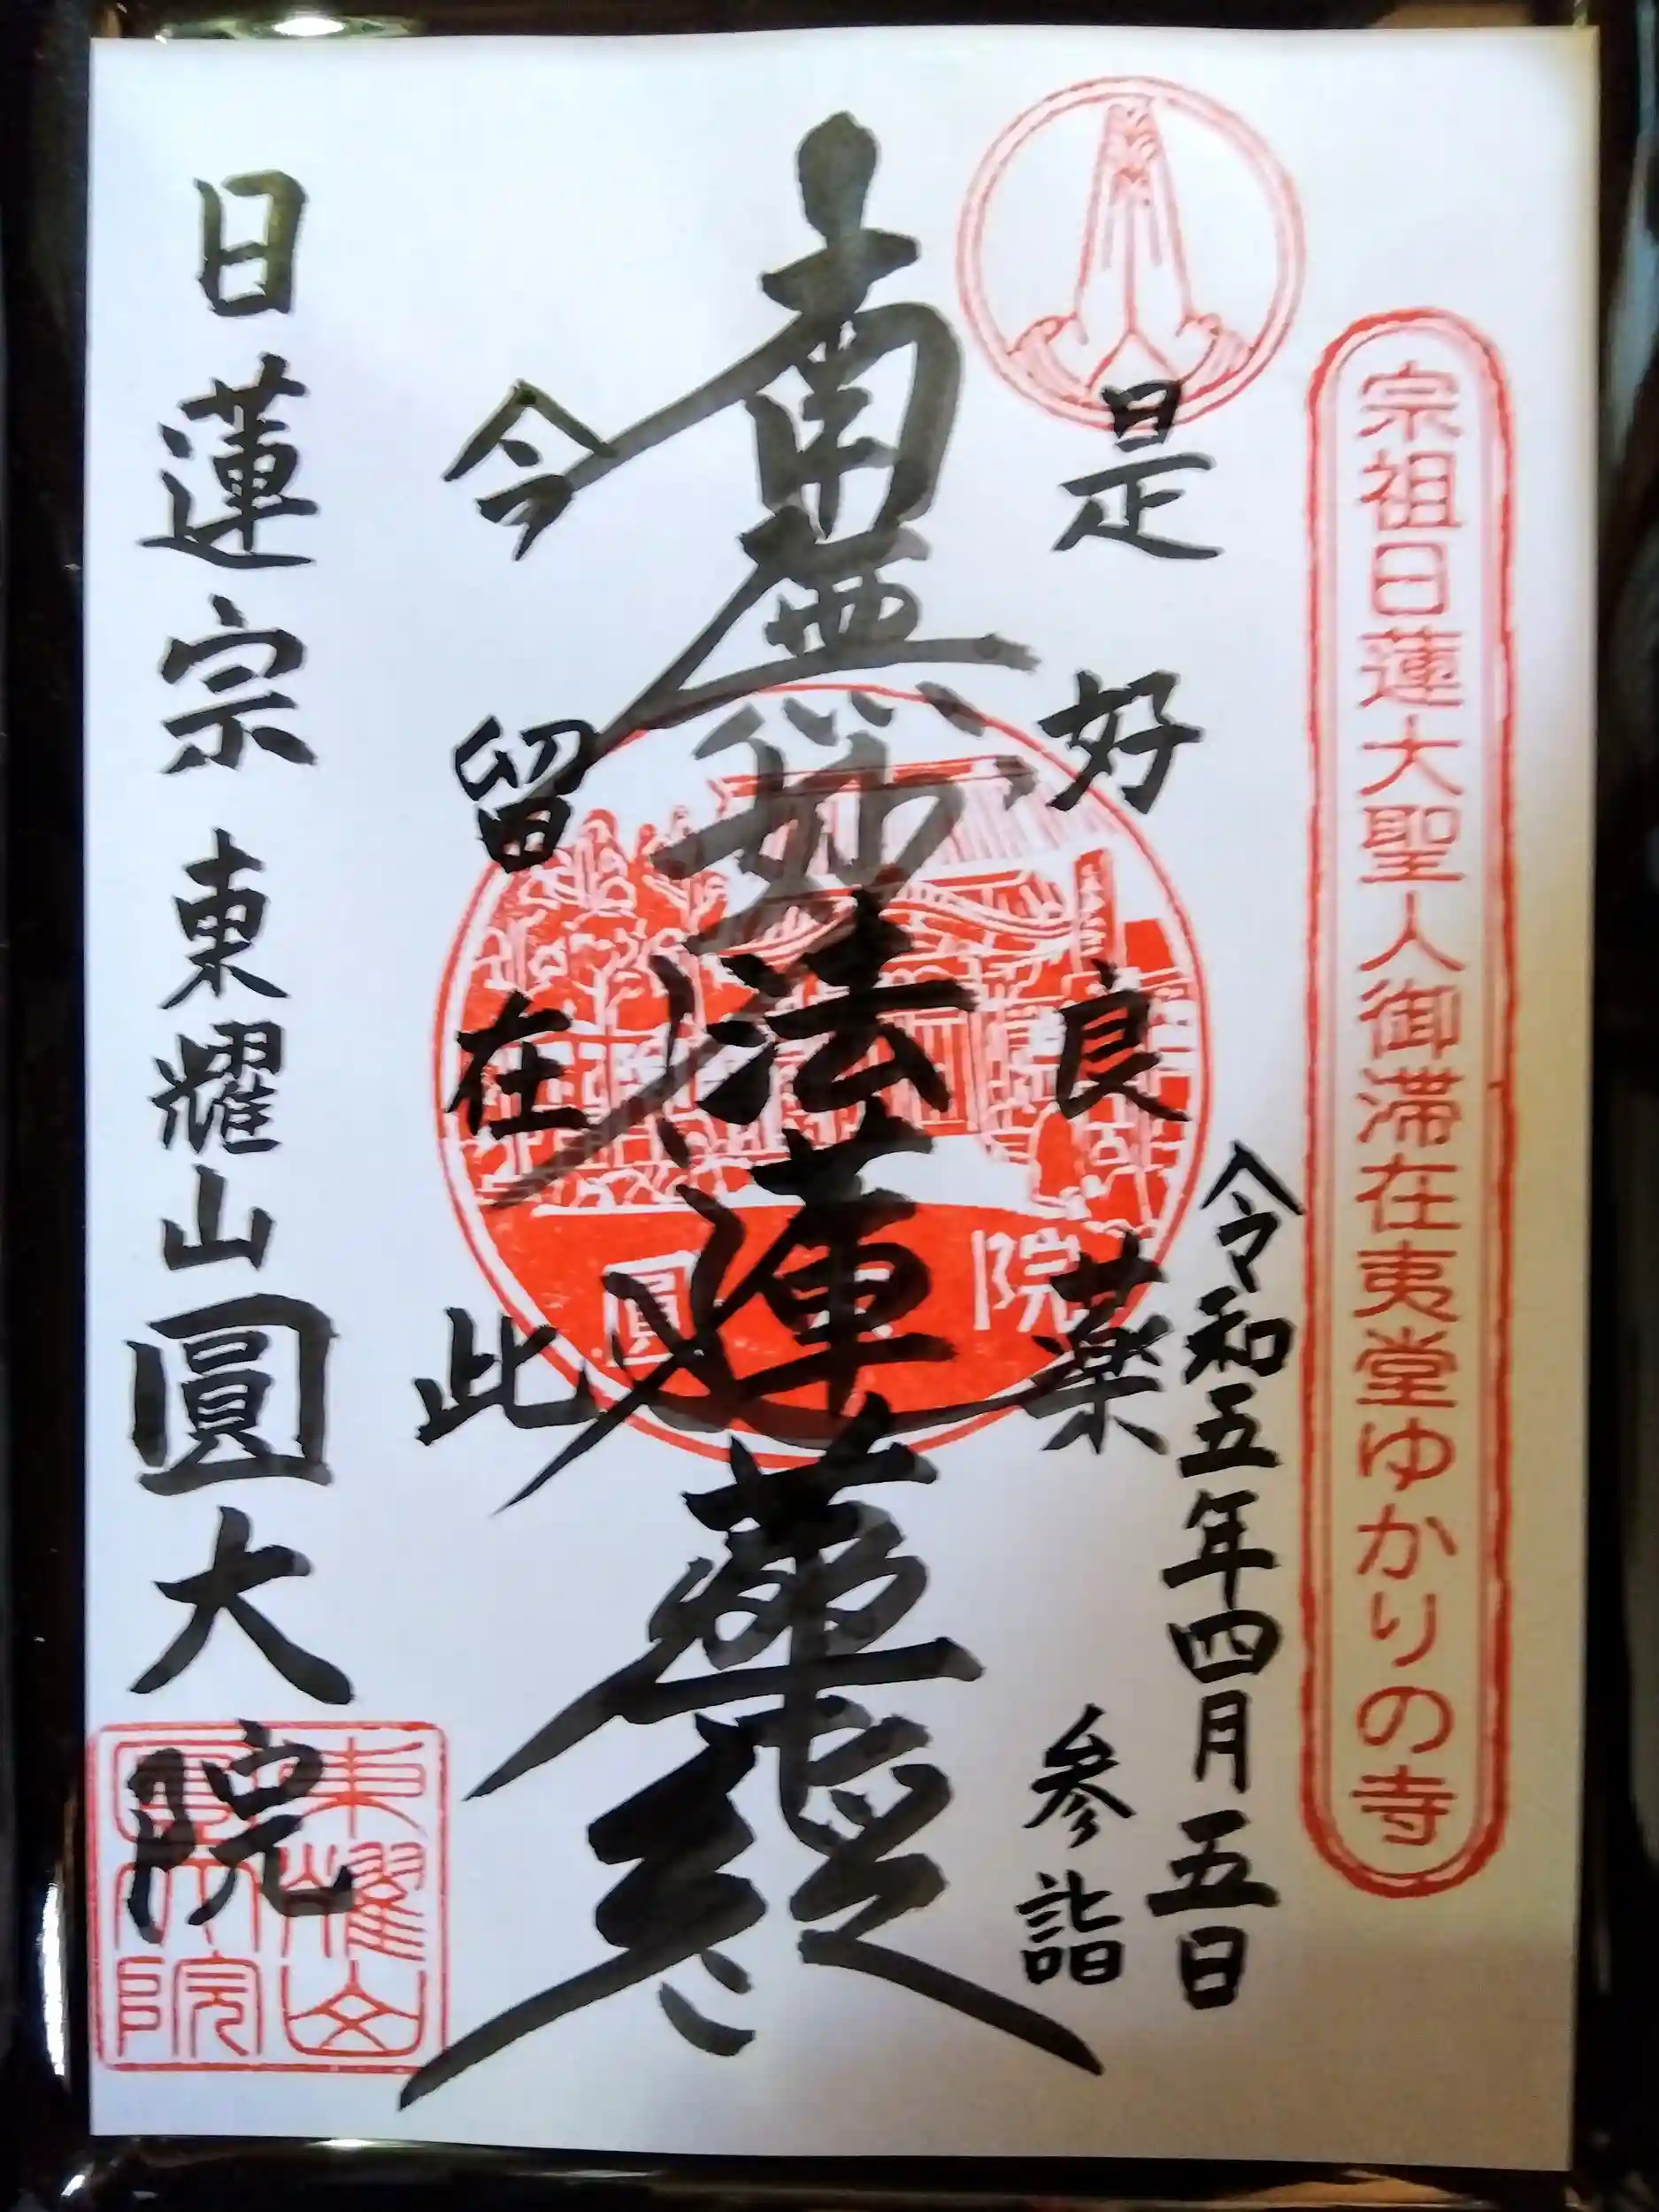 宗祖日蓮大聖人御滞在夷堂ゆかりの寺
令和五年四月五日
参詣
是好良薬
南無妙法蓮華経
今留在此
圓大院
日蓮宗東耀山圓大院
東耀山
圓大院